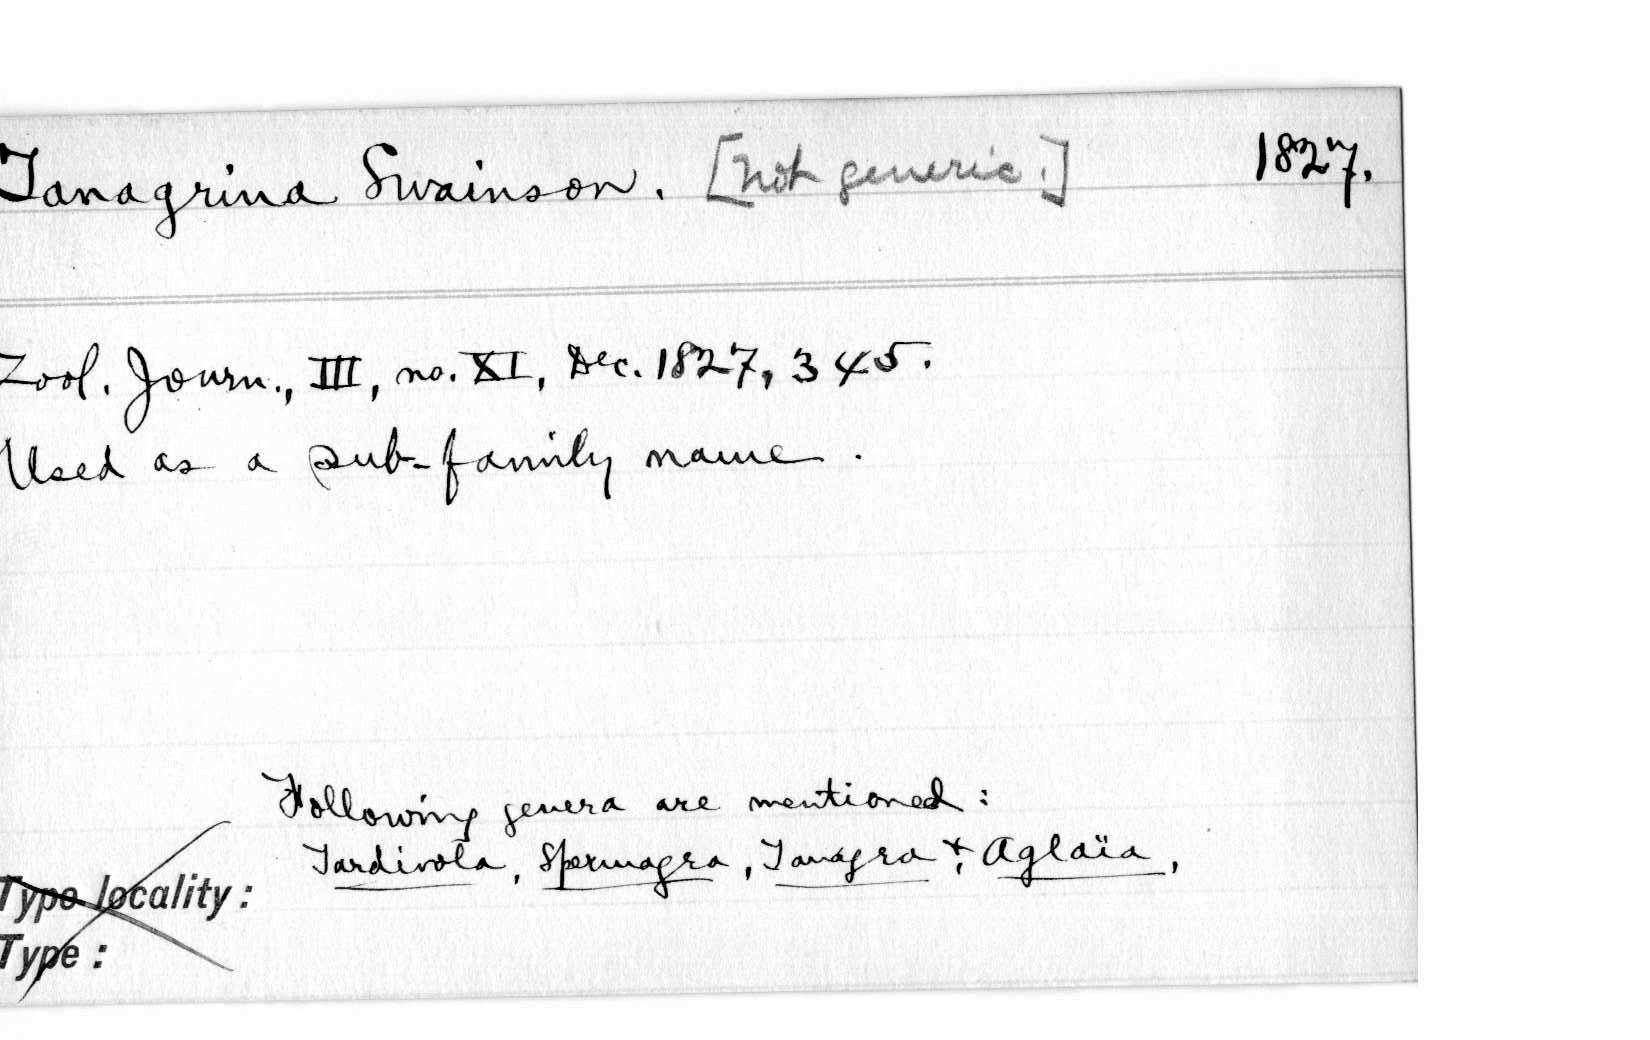 Tanagrina Swainson. [not generic.] 1827.
Zool. Journ., III, no. XI, Dec. 1827, 345.
Used as a sub-family name.
Following genera are mentioned:
Tardivola, Spermagra, Tanagra & Aglaïa,
Type locality:
Type: